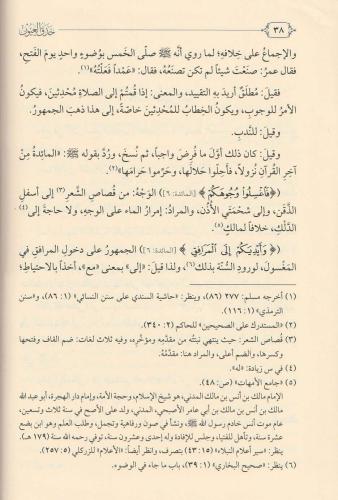 ٣٨
والإجماعُ على خلافِه؛ لما روي أنَّه ﷺ صلَّى الخَمس بوُضوءٍ واحدٍ يومَ الفَتحِ،
فقال عمرُ: صنَعْتَ شيئاً لم تكن تصنَعُه، فقال: «عَمْداً فَعَلْتُهُ»(١).
فقيلَ: مُطلَقٌ أُريدَ به التقييد، والمعنى: إذا قُمتُم إلى الصلاةِ مُحْدِثينَ، فيكونُ
الأمرُ للوجوبِ، ويكونُ الخِطابُ للمُحْدِثينَ خاصَّةً، إلى هذا ذهَبَ الجمهورُ.
وقيلَ: للنَّدبِ.
وقيلَ: كان ذلك أوَّلَ ما فُرِضَ واجباً، ثم نُسِخَ، ورُدَّ بقولِه ﷺ: «المائِدةُ مِنْ
آخرِ القُرآنِ نُزولاً، فأحِلُّوا حَلالَها، وحرِّموا حَرامَها»(٢).
(﴿فَاغْسِلُوا وُجُوهَكُمْ﴾ [المائدة: ٦]) الوَجْهُ: من قُصاصِ الشَّعرِ(٣) إلى أسفلِ
الذَّقَنِ، وإلى شَحْمَتي الأُذُنِ، والمرادُ: إمرارُ الماءِ على الوجهِ، ولا حاجةَ إلى(٤)
الدَّلْكِ، خلافاً لمالكٍ(٥).
(﴿وَأَيْدِيَكُمْ إِلَى الْمَرَافِقِ﴾ [المائدة: ٦]) الجمهورُ على دخولِ المرافقِ في
المَغْسولِ، لورودِ السُّنَّة بذلك(٦)، ولذا قيلَ: «إلى» بمعنى «مع»، أخذاً بالاحتياطِ؛
(١) أخرجه مسلم: ٢٧٧ (٨٦)، وينظر: «حاشية السندي على سنن النسائي» (١: ٨٦)، و«سنن
الترمذي» (١: ١١٦).
(٢) «المستدرك على الصحيحين» للحاكم (٢: ٣٤٠).
(٣) قُصاص الشعر: حيث ينتهي نبتُه من مقدَّمه ومؤخَّره، وفيه ثلاث لغات: ضم القاف وفتحها
وكسرها، والضم أعلى، والمراد هنا: مقدَّمُه.
(٤) في س زيادة: «له».
(٥) «جامع الأمهات» (ص: ٤٨).
الإمام مالك بن أنس بن مالك المدني، هو شيخ الإسلام، وحجة الأمة، وإمام دار الهجرة، أبو عبد الله
مالك بن أنس بن مالك بن أبي عامر الأصبحي، المدني، ولد على الأصح في سنة ثلاث وتسعين،
عام موت أنس خادم رسول الله ﷺ، ونشأ في صون ورفاهية وتجمل، وطلب العلم وهو ابن بضع
عشرة سنة، وتأهل للفتيا، وجلس للإفادة وله إحدى وعشرون سنة، توفي رحمه الله سنة (١٧٩ هـ).
ينظر: «سير أعلام النبلاء» (١٥: ٤٣) بتصرف، وانظر أيضاً: «الأعلام» للزركلي (٥: ٢٥٧).
(٦) ينظر: «صحيح البخاري» (١: ٣٩)، باب ما جاء في الوضوء.